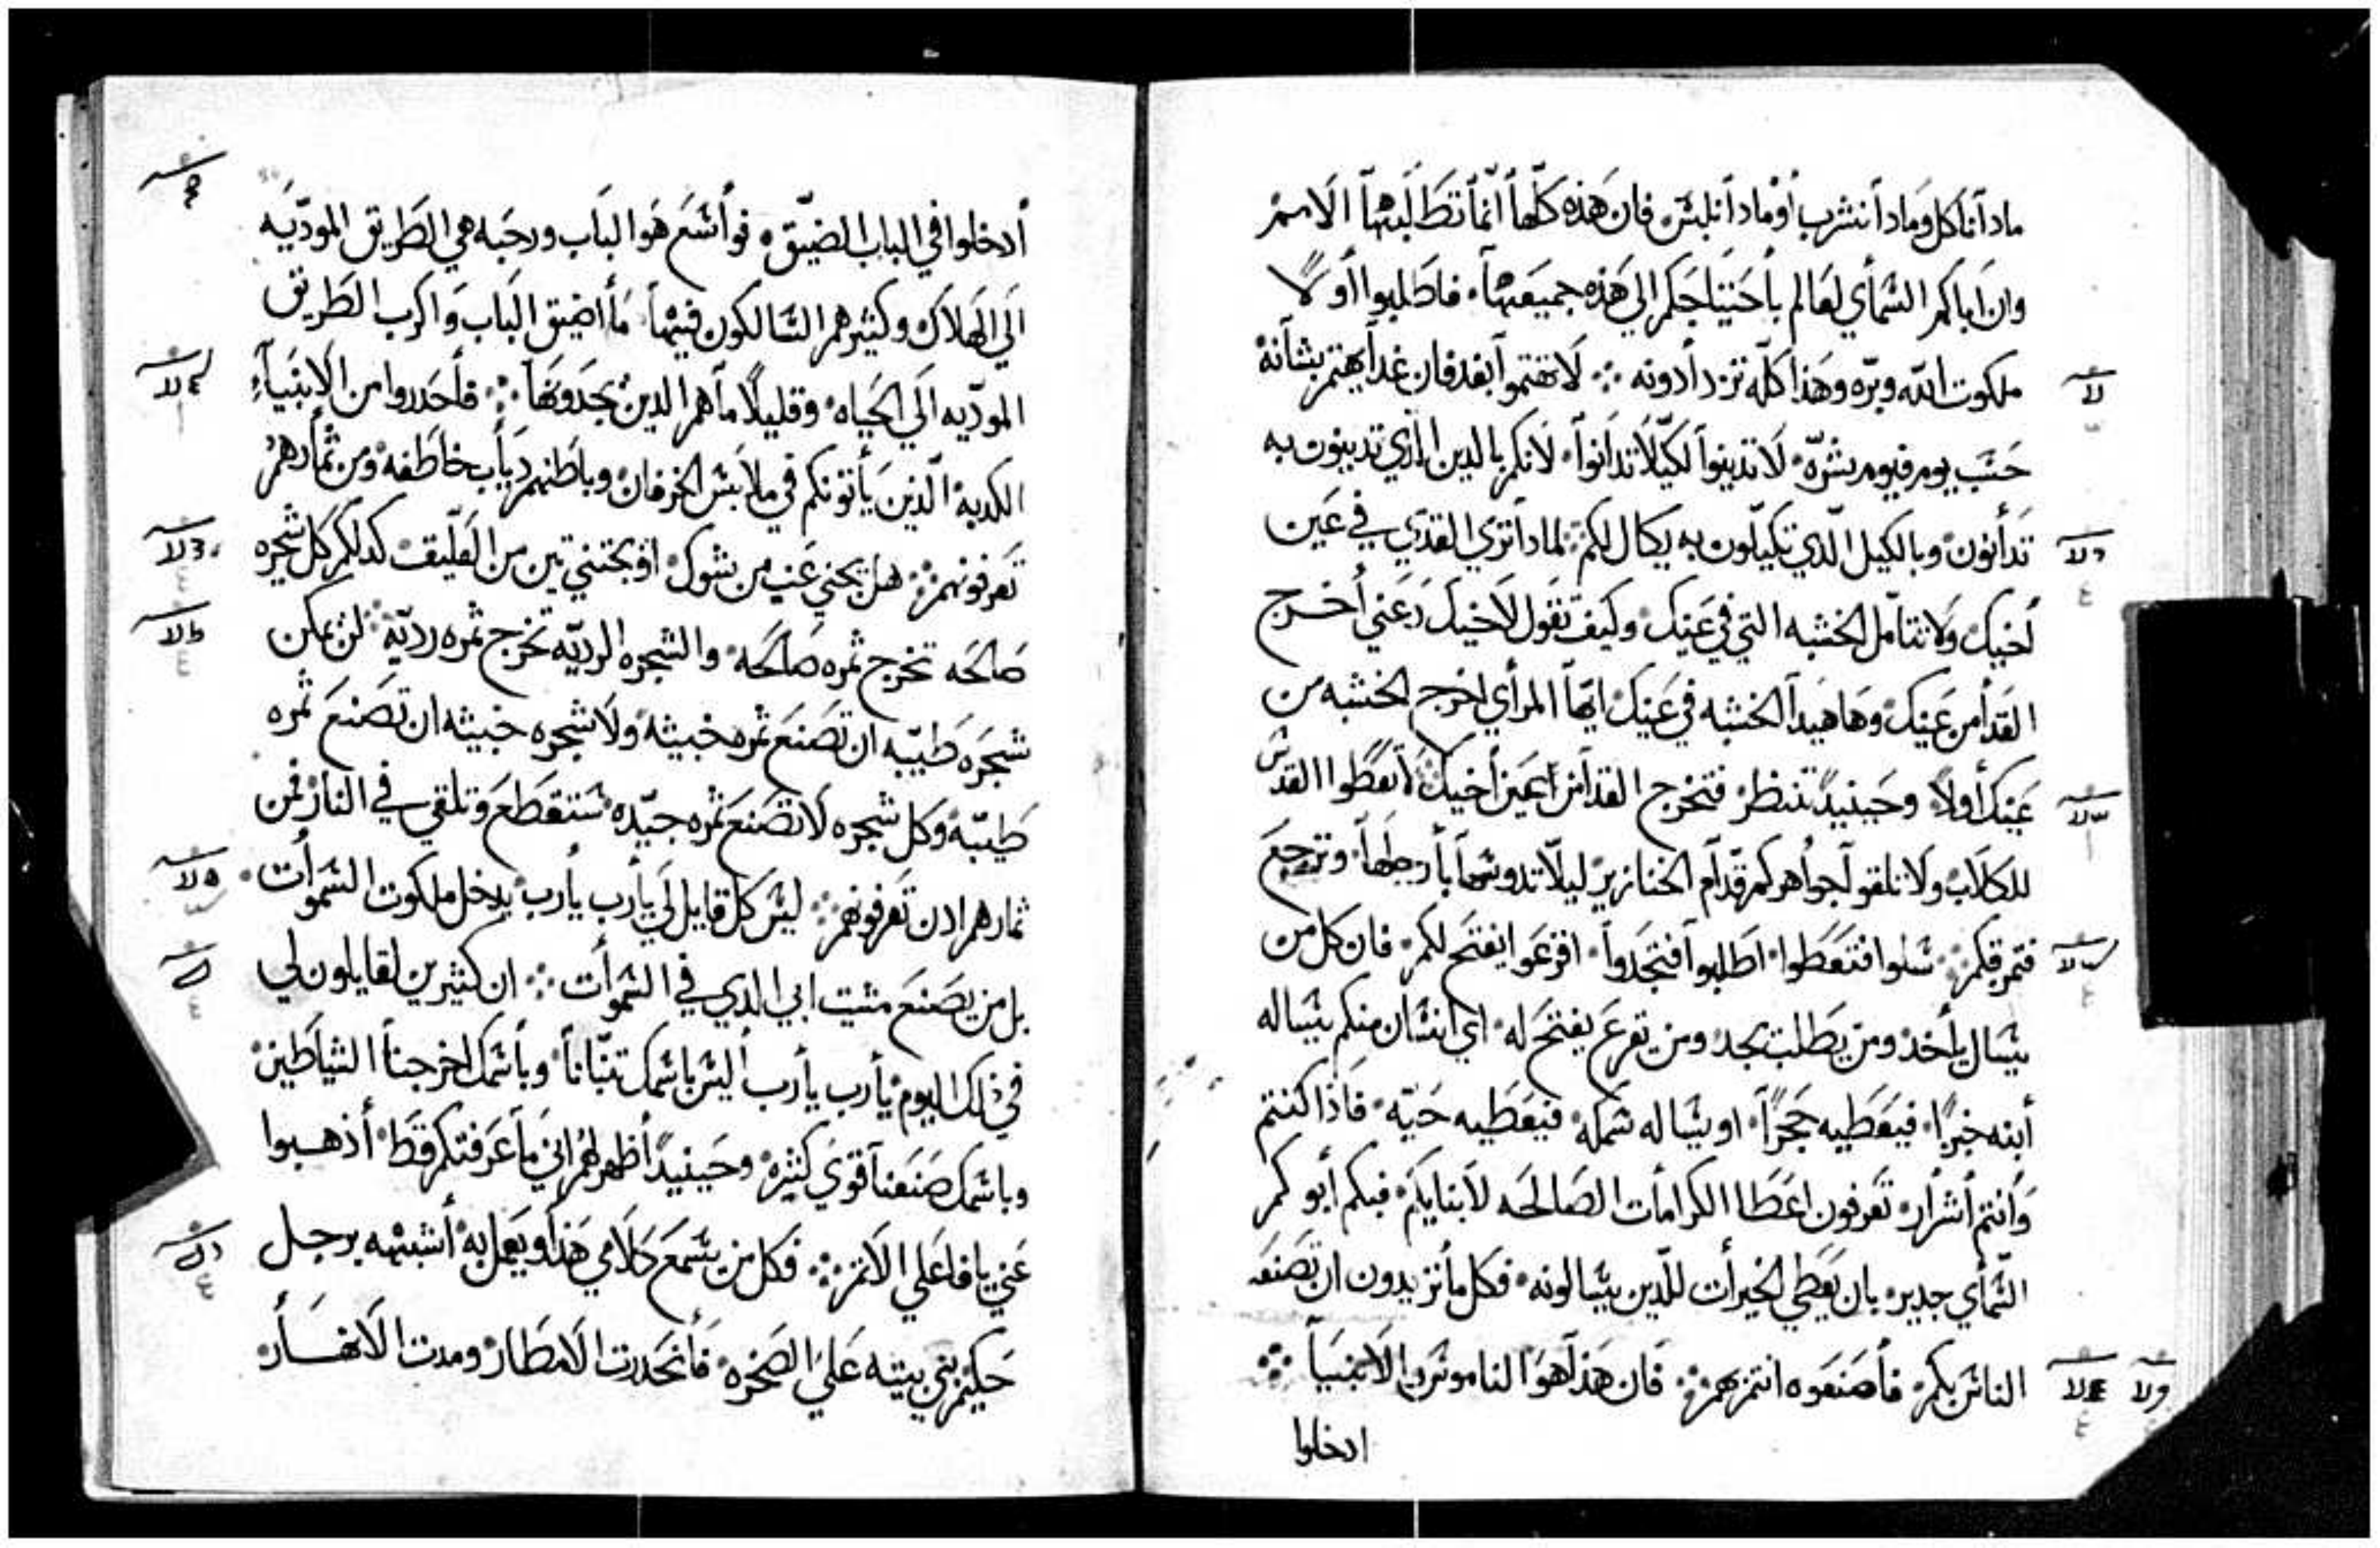 مادا ناكل وماذا نشرب أو مادا نلبس فان هذه كلها انما تطلبها الامم
وان اباكم السمأي لعالم باحتياجكم الي هذه جميعها فاطلبوا أولاً
ملكوت الله وبره وهذا كله تزدادونه لا تهتموا بغد فان غدا يهتم بشانه
حسب يوم فيوم بشره لا تدينوا لكيلا تدانوا لانكم بالدين الذي تدينون به
تدانون وبالكيل الذي تكيلون به يكال لكم لمادا تري القدي في عين
أخيك ولا تتأمل الخشبه التي في عينك وكيف تقول لاخيك دعني أخرج
القدا من عينك وها هيدا الخشبه في عينك ايها المرأي اخرج الخشبه من
عينك أولا وحينيد تنظر فتخرج القدا من عين أخيك لا تعطوا القدس
للكلاب ولا تلقوا جواهركم قدام الخنازير ليلا تدوسها بأرجلها وترجع
فتمزقكم سلوا فتعطوا اطلبوا فتجدوا اقرعوا يفتح لكم فان كل من
يسال يأخذ ومن يطلب يجد ومن يقرع يفتح له اي انسان منكم يساله
أبنه خبزا فيعطيه حجرا او يساله سمكه فيعطيه حيه فاذا كنتم
وانتم أشرار تعرفون اعطا الكرامات الصالحه لابنايكم فبكم أبوكم
السمأي جدير بان يعطي الخيرات للدين يسالونه فكل ما تريدون ان تصنعه
الناس بكم فأصنعوه انتم بهم فان هذا هو الناموس والانبيا
ادخلوا
أدخلوا في الباب الضيق فوأسع هو الباب ورحبه هي الطريق المودّيه
الي الهلاك وكثير هم السالكون فيها ما أضيق الباب واكرب الطريق
المودّيه الي الحياه وقليلا ما هم الدين يجدونها فأحدروا من الانبيآء
الكدبه الذين يأتونكم في ملابس الخرفان وباطنهم دياب خاطفه ومن ثمارهم
تعرفونهم هل يجني عنب من شوك او يجتني تين من العليق كدلكم كل شجره
صالحه تخرج ثمره صالحه والشجره الرديّه تخرج ثمره رديّه لن يمكن
شجره طيبه ان تصنع ثمره خبيثه ولا شجره خبيثه ان تصنع ثمره
طيبه وكل شجره لا تصنع ثمره جيّده ستقطع وتلقي في النار فمن
ثمارهم ادن تعرفونهم ليس كل قايل لي يأرب يأرب يدخل ملكوت السموأت
بل من يصنع مشيت ابي الدي في السموأت ان كثيرين لقايلون لي
في ذلك اليوم يأرب يأرب أليس باسمك تنبانا وبأسمك اخرجنا الشياطين
وباسمك صنعنا قوي كثيره وحينيد أظهر لهم اني ما عرفتكم قط أذهبوا
عني يا فاعلي الاثم فكل من يسمع كلامي هذا ويعمل به أشبهه برجل
حكيم بني بيته علي الصخره فأنحدرت الامطار ومدت الانهار